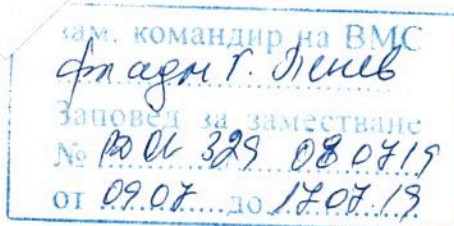 зам. командир на ВМС
фл. адм Г. Пенев
Заповед за заместване
№ РД 01 329 08.07.19
от 09.07 до 17.07.19